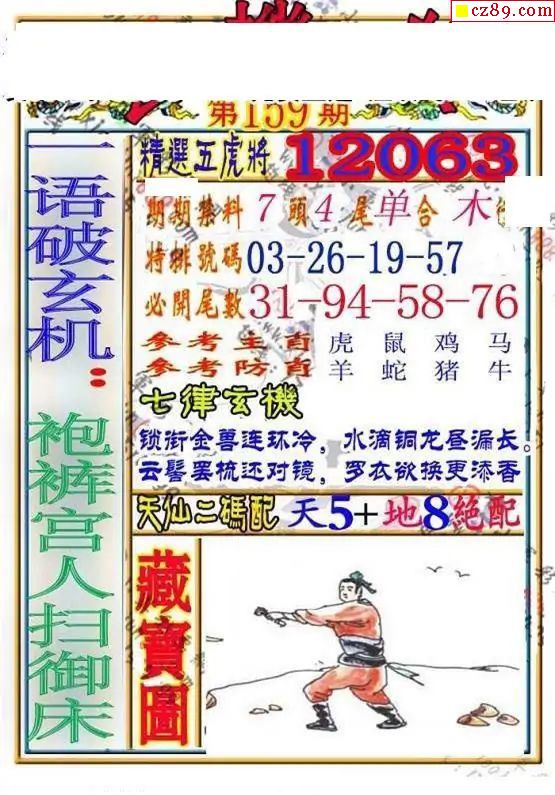 cz89.com
第159期
一语破玄机：
袍裤宫人扫御床
精選五虎將 12063
期期禁料 7頭4尾单合 木
特排號碼 03-26-19-57
必開尾數 31-94-58-76
參考主肖 虎 鼠 鸡 马
參考防肖 羊 蛇 猪 牛
七律玄機
锁衔金兽连环冷，水滴铜龙昼漏长。
云髻罢梳还对镜，罗衣欲换更添香
天仙二碼配 天5+地8絕配
藏寶圖